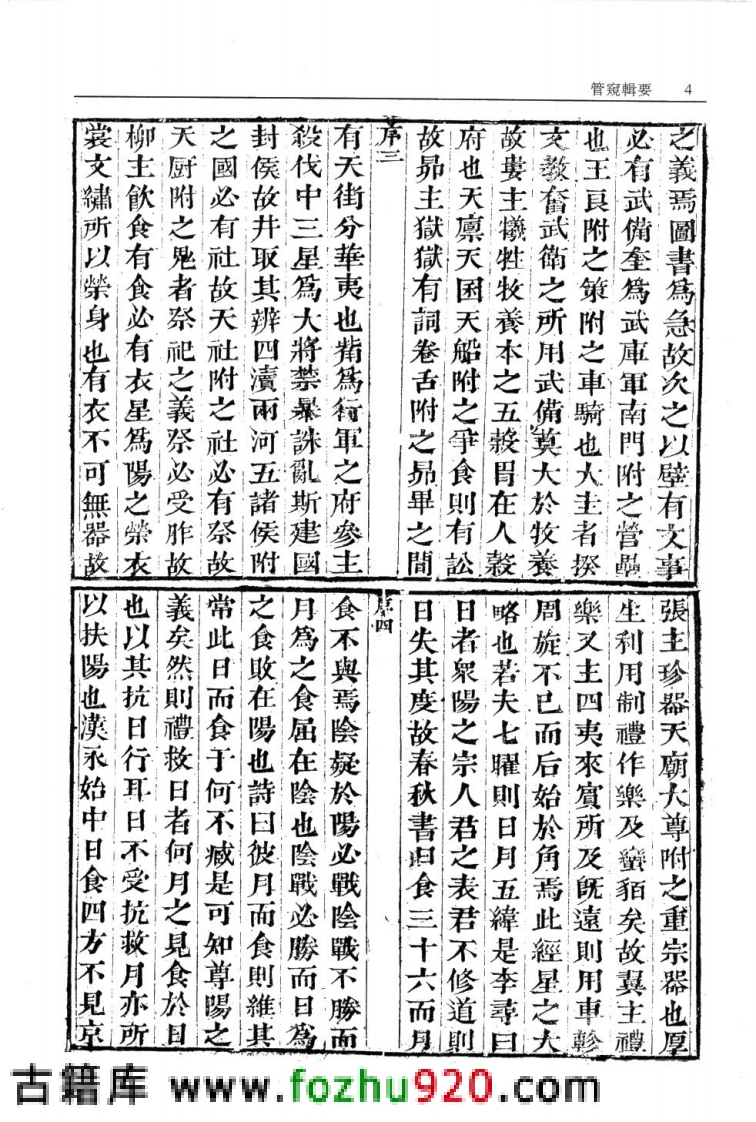 管窺輯要 4
之義焉圖書爲急故次之以壁有文事
必有武備奎爲武庫軍南門附之營壘
也王良附之策附之車騎也大主者揆
文教奮武衛之所用武備莫大於牧養
故婁主犧牲牧養本之五穀胃在人穀
府也天廩天囷天船附之爭食則有訟
故昴主獄獄有詞卷舌附之昴畢之間
序三
有天街分華夷也觜爲行軍之府參主
殺伐中三星爲大將禁暴誅亂斯建國
封侯故井取其辨四瀆兩河五諸侯附
之國必有社故天社附之社必有祭故
天厨附之鬼者祭祀之義祭必受胙故
柳主飲食有食必有衣星爲陽之榮衣
裳文繡所以榮身也有衣不可無器故
張主珍器天廟大尊附之重宗器也厚
生利用制禮作樂及蠻貊矣故翼主禮
樂又主四夷來賓所及旣遠則用車軫
周旋不已而后始於角焉此經星之大
略也若夫七曜則日月五緯是李尋曰
日者衆陽之宗人君之表君不修道則
日失其度故春秋書日食三十六而月
序四
食不與焉陰疑於陽必戰陰戰不勝而
月爲之食屈在陰也陰戰必勝而日爲
之食敗在陽也詩曰彼月而食則維其
常此日而食于何不臧是可知尊陽之
義矣然則禮救日者何月之見食於日
也以其抗日行耳日不受抗救月亦所
以扶陽也漢永始中日食四方不見京
古籍库 www.fozhu920.com